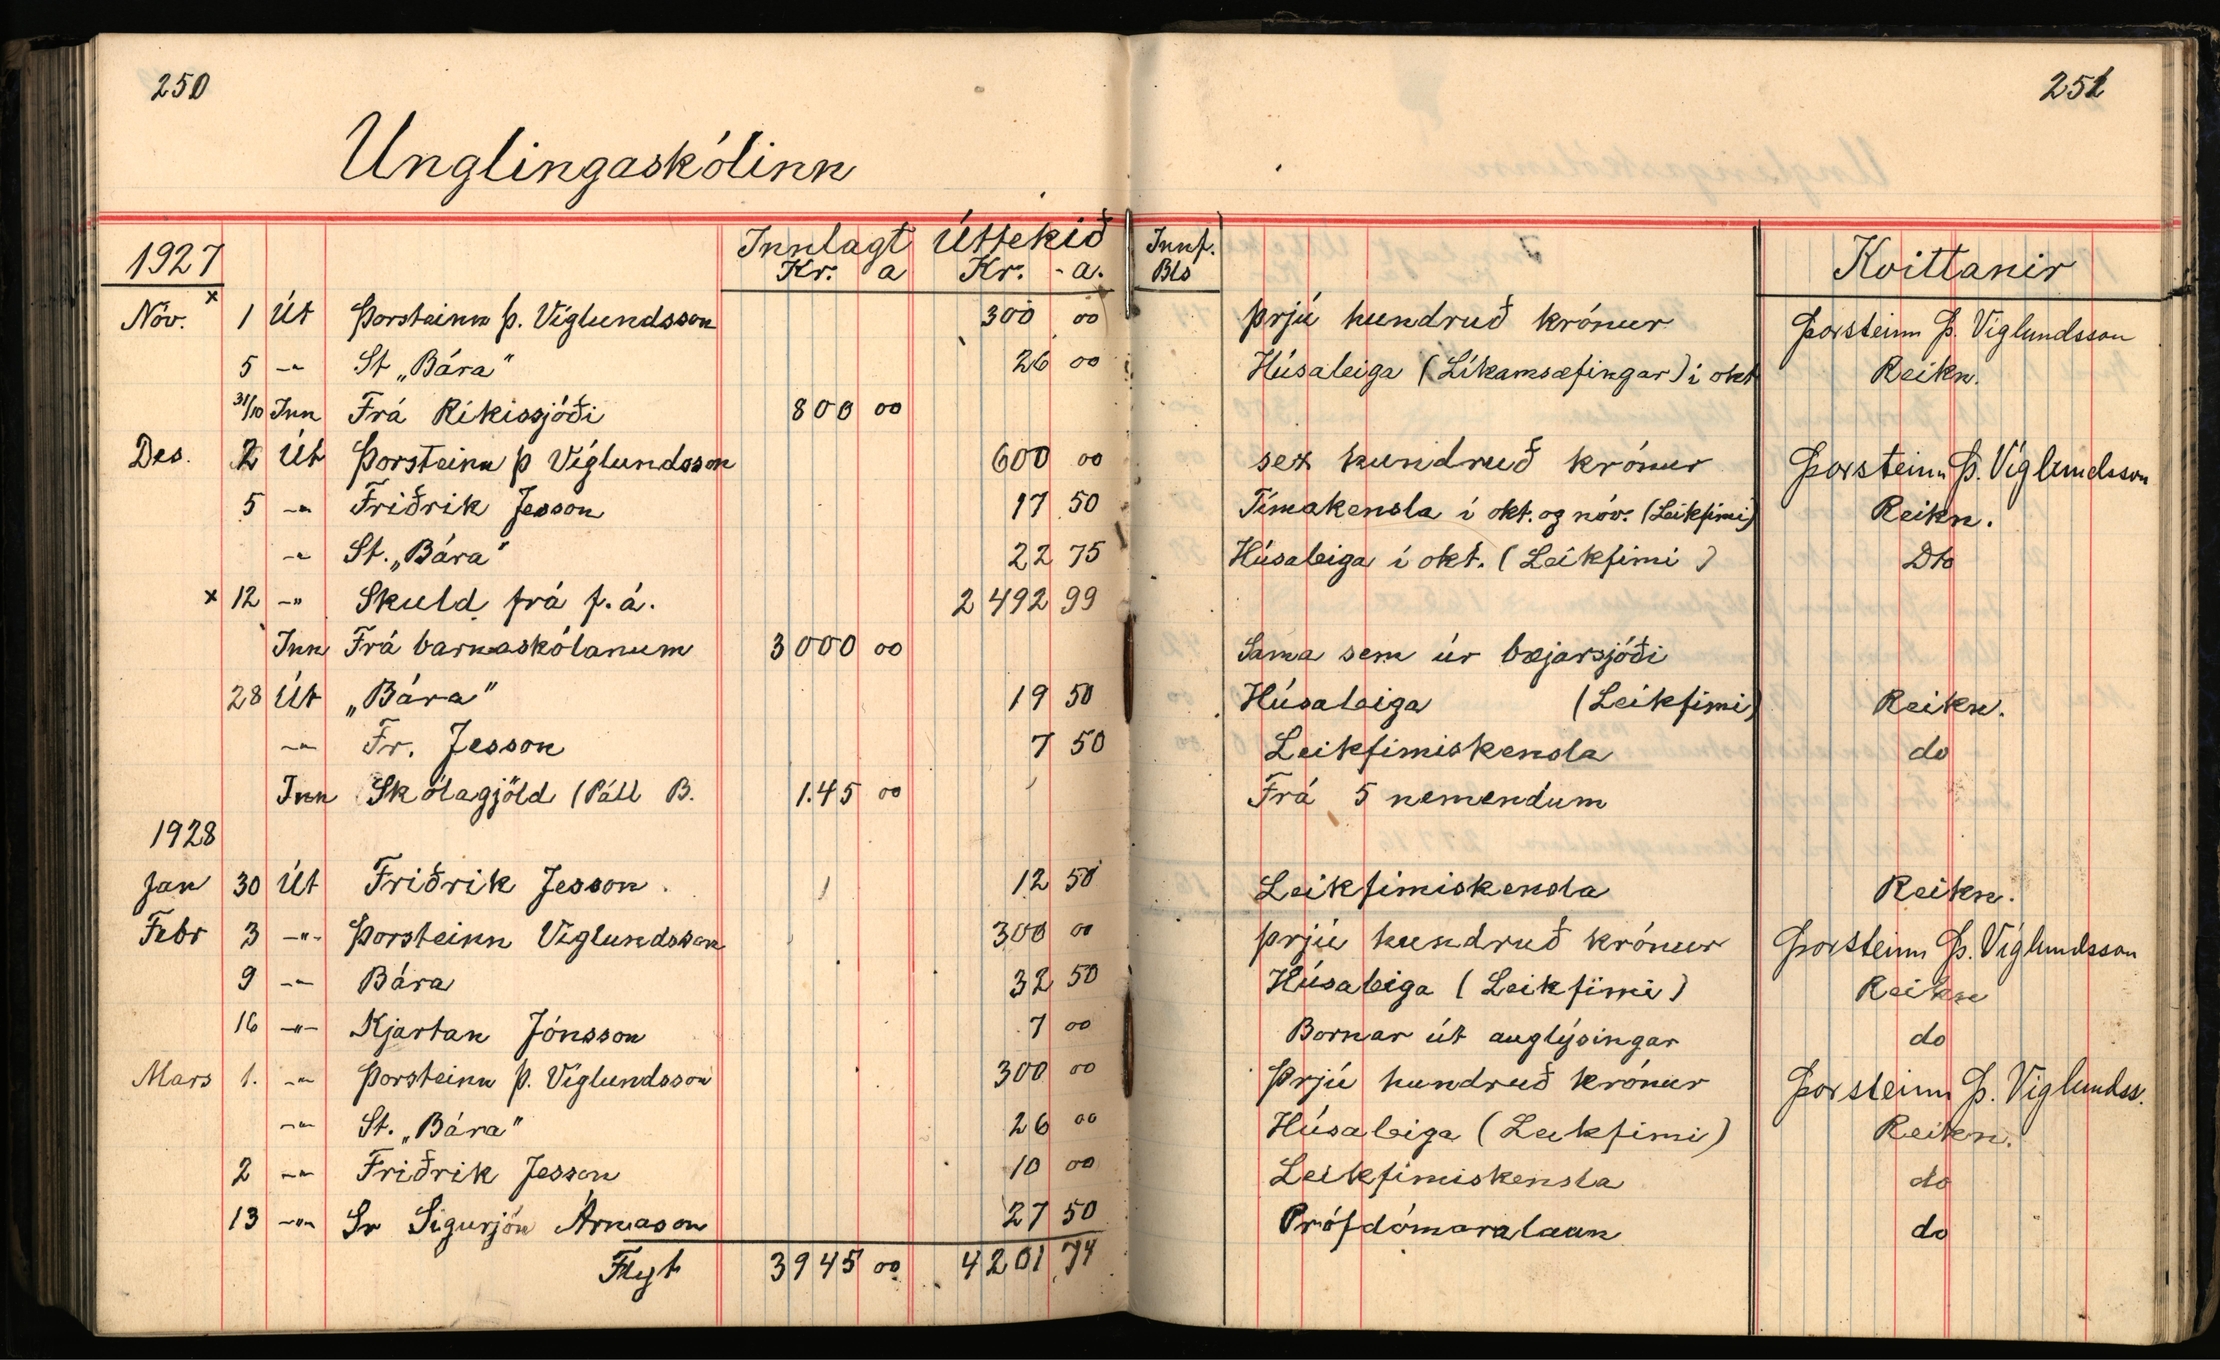 250
251
Unglingaskólinn
1927 Innlagt Úttekið Innf. Kvittanir
Kr. a Kr. - a. Bls
Nóv. x 1 Út Þorsteinn Þ. Víglundsson 300 00 Þrjú hundruð krónur Þorsteinn Þ. Víglundsson
5 -"- St „Bára" 26 00 Húsaleiga (Líkamsæfingar) í okt Reikn.
31/10 Inn Frá Ríkissjóði 800 00
Des. 2 Út Þorsteinn Þ Víglundsson 600 00 sex hundruð krónur Þorsteinn Þ. Víglundsson
5 -"- Friðrik Jesson 17 50 Tímakensla í okt. og nóv. (Leikfimi) Reikn.
-"- St. „Bára" 22 75 Húsaleiga í okt. (Leikfimi) Dto
x 12 -"- Skuld frá f. á. 2492 99
Inn Frá barnaskólanum 3000 00 Sama sem úr bæjarsjóði
28 Út „Bára" 19 50 Húsaleiga (Leikfimi) Reikn.
-"- Fr. Jesson 7 50 Leikfimiskensla do
Inn Skólagjöld (Páll B. 1.45 00 Frá 5 nemendum
1928
Jan 30 Út Friðrik Jesson 12 50 Leikfimiskensla Reikn.
Febr 3 -"- Þorsteinn Víglundsson 300 00 Þrjú hundruð krónur Þorsteinn Þ. Víglundsson
9 -"- Bára 32 50 Húsaleiga (Leikfimi) Reikn
16 -"- Kjartan Jónsson 7 00 Bornar út auglýsingar do
Mars 1. -"- Þorsteinn Þ. Víglundsson 300 00 Þrjú hundruð krónur Þorsteinn Þ. Víglundss.
-"- St. „Bára" 26 00 Húsaleiga (Leikfimi) Reikn.
2 -"- Friðrik Jesson 10 00 Leikfimiskensla do
13 -"- Sr Sigurjón Árnason 27 50 Prófdómaralaun do
Flyt 3945 00 4201 74